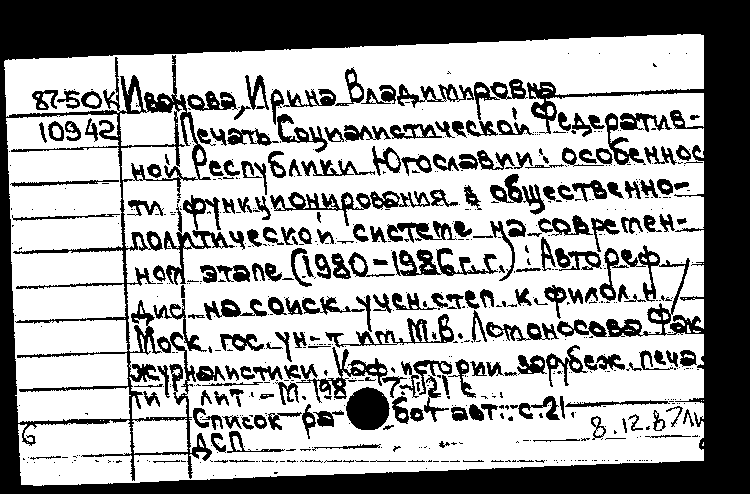 87-50К Иванова, Ирина Владимировна
10942 Печать Социалистической Федератив-
ной Республики Югославии: особеннос
ти функционирования в общественно-
политической системе на современ-
ном этапе (1980-1986г.г.): Автореф.
дис на соиск. учен. степ. к. филол. н. /
Моск. гос. ун-т им. М.В. Ломоносова. Фак
журналистики. Каф. истории зарубеж. печа
ти и лит - М. 198 21 с
Список работ авт.: с. 21.
8.12.87
ДСП